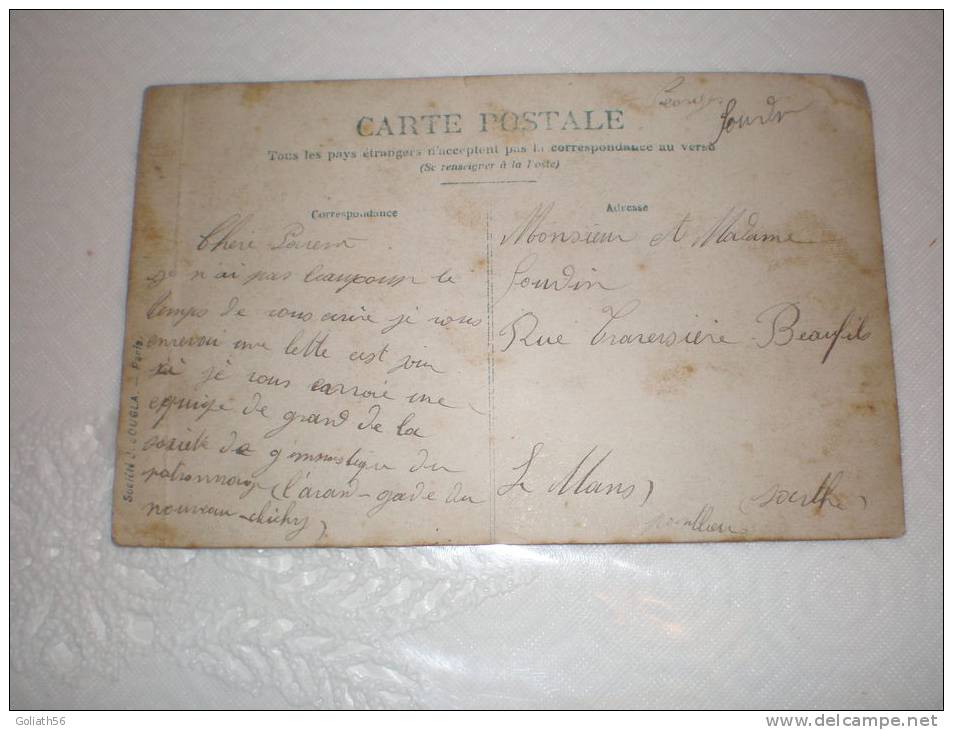 Georges
CARTE POSTALE
Soudin
Tous les pays étrangers n'acceptent pas la correspondance au verso
(Se renseigner à la Poste)
Correspondance
Adresse
Cheri Parent
Je n'ai pas beaucoup le
temps de vous écrire je vous
enverai une lettre
je vous envoie une
equipe de grand de la
société de gimnastique du
patronnage (l'avand-gade du
nouveau-clichy)
Monsieur et Madame
Soudin
Rue Traversière Beaufils
Le Mans
(sarthe)
SOCIÉTÉ J. JOUGLA. — Paris.
Goliath56
www.delcampe.net